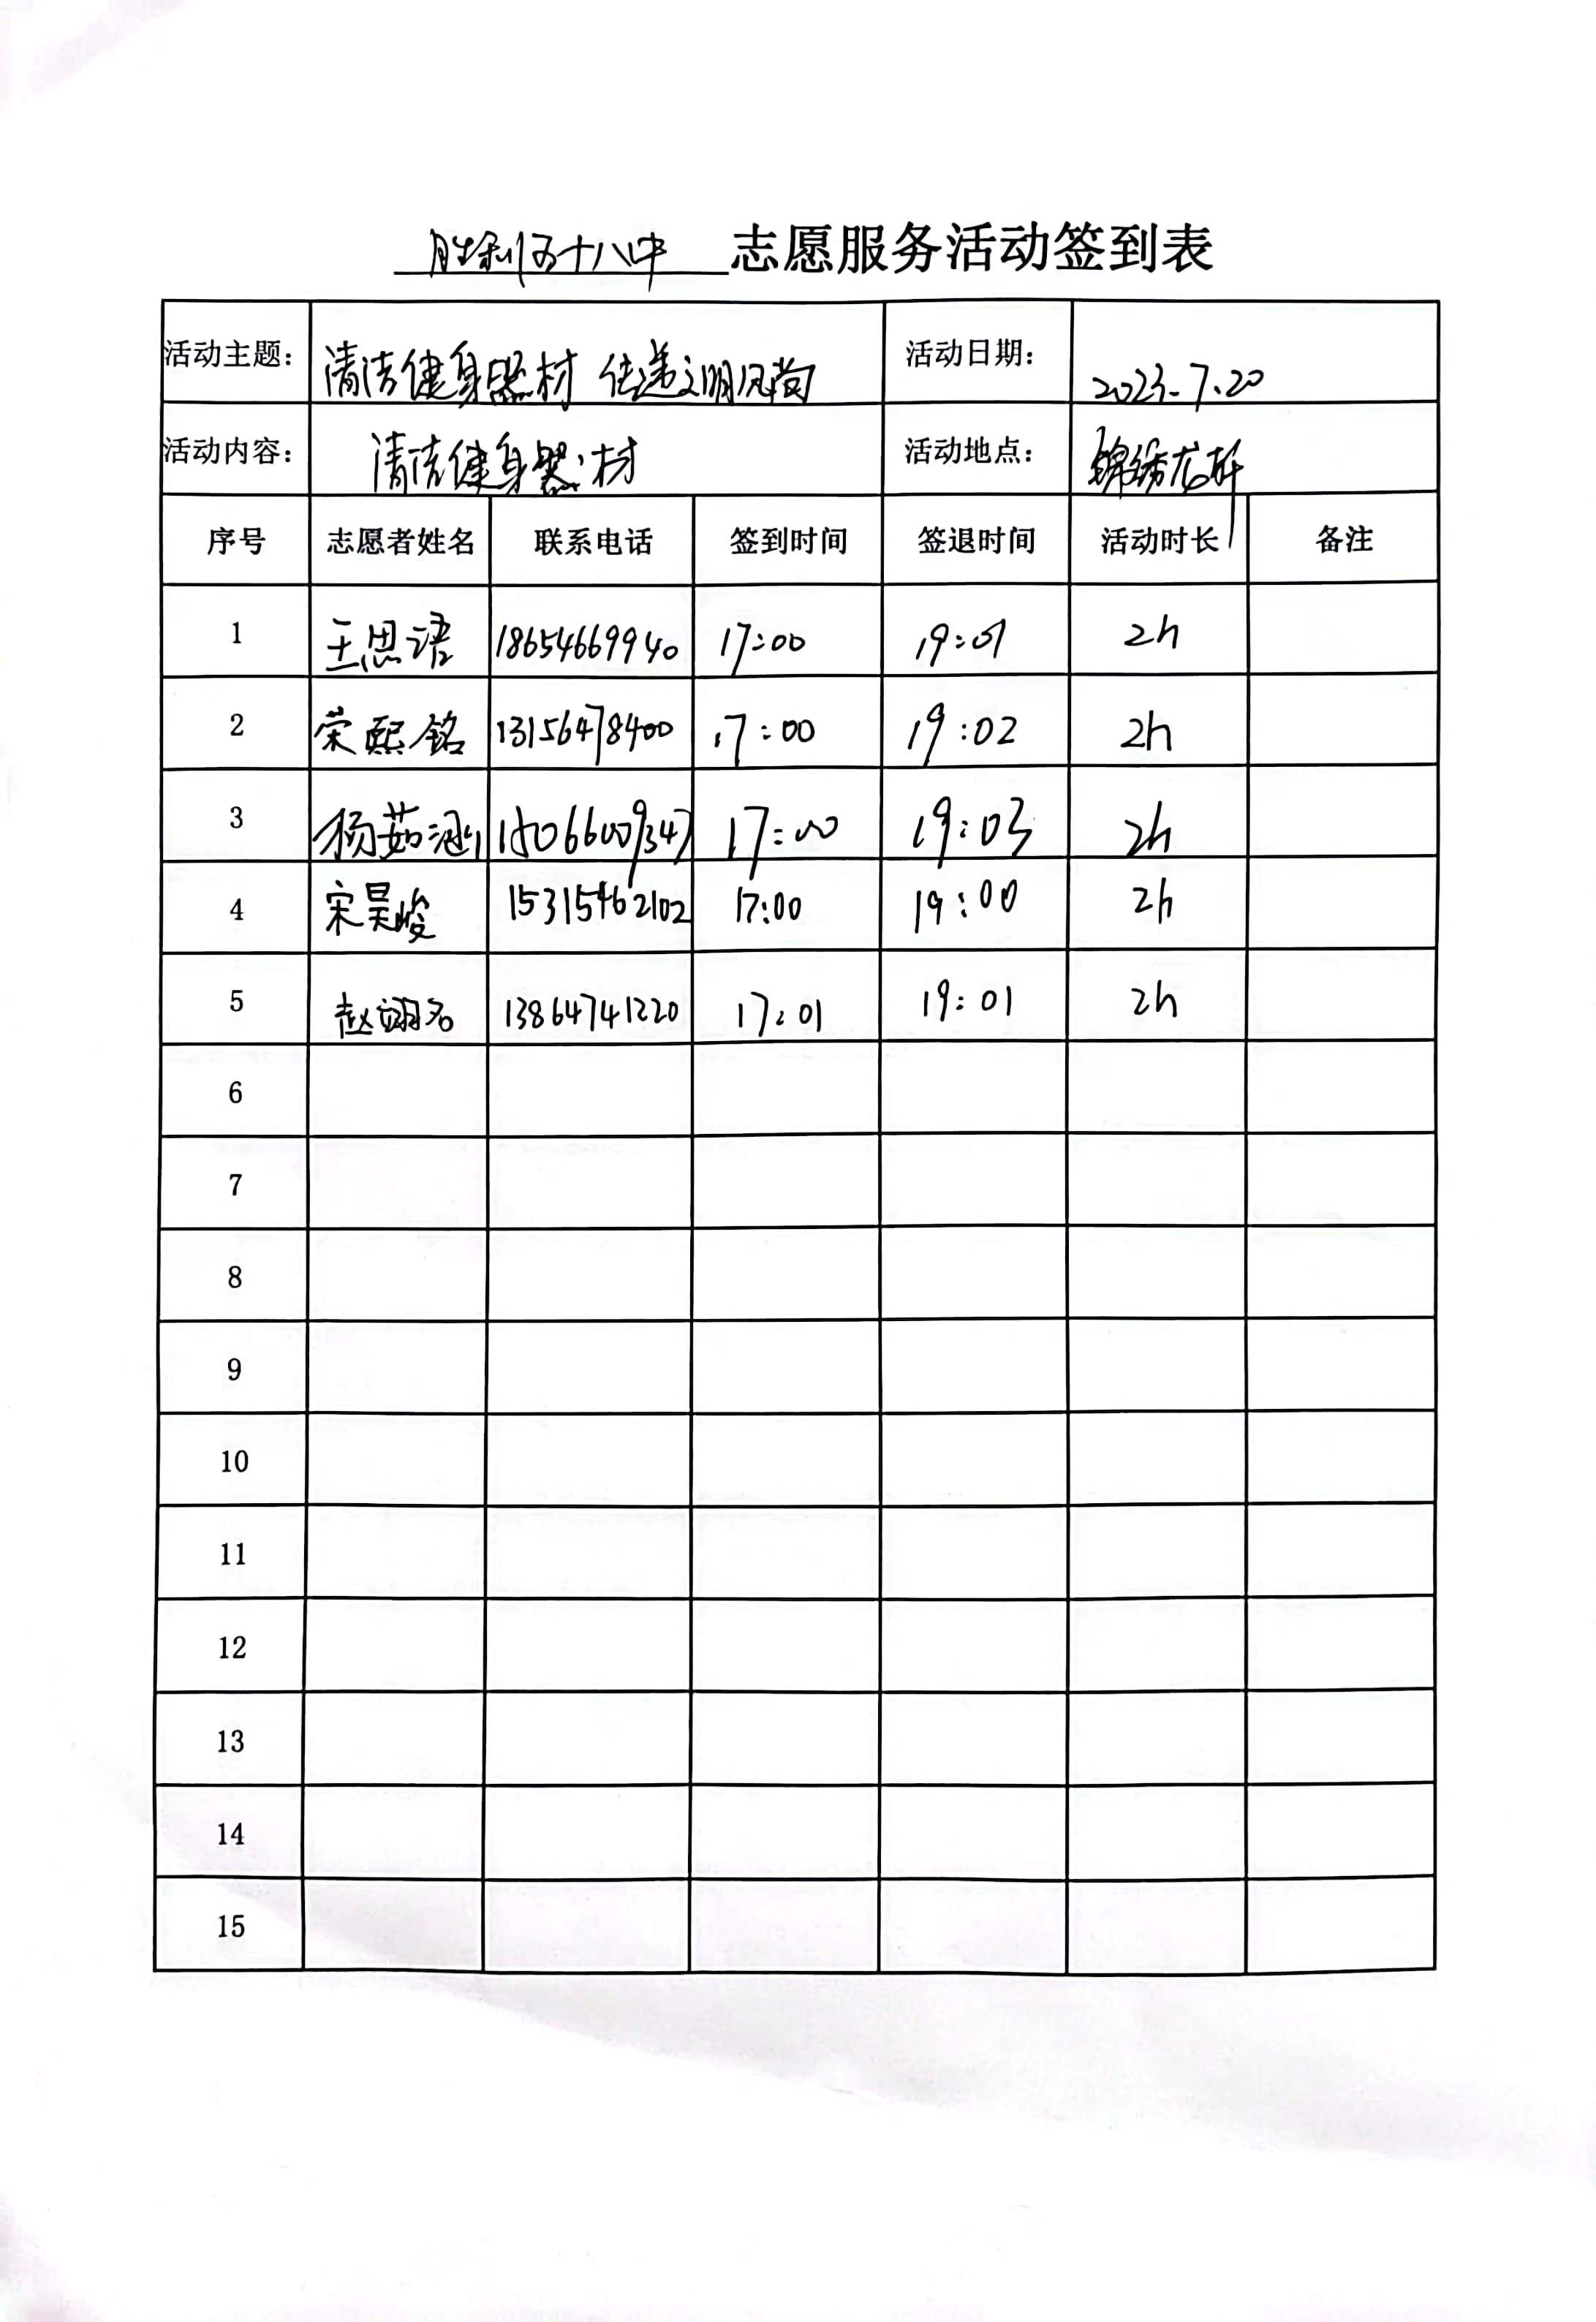 胜利五十八中 志愿服务活动签到表
活动主题: 清洁健身器材 传递文明风尚 活动日期: 2023.7.20
活动内容: 清洁健身器材 活动地点: 锦绣龙轩
序号 志愿者姓名 联系电话 签到时间 签退时间 活动时长 备注
1 王思语 18654669940 17:00 19:01 2h
2 荣熙铭 13156478400 17:00 19:02 2h
3 杨茹涵 17:00 19:03 2h
4 宋昊峻 15315462102 17:00 19:00 2h
5 赵翊名 13864741220 17:01 19:01 2h
6
7
8
9
10
11
12
13
14
15